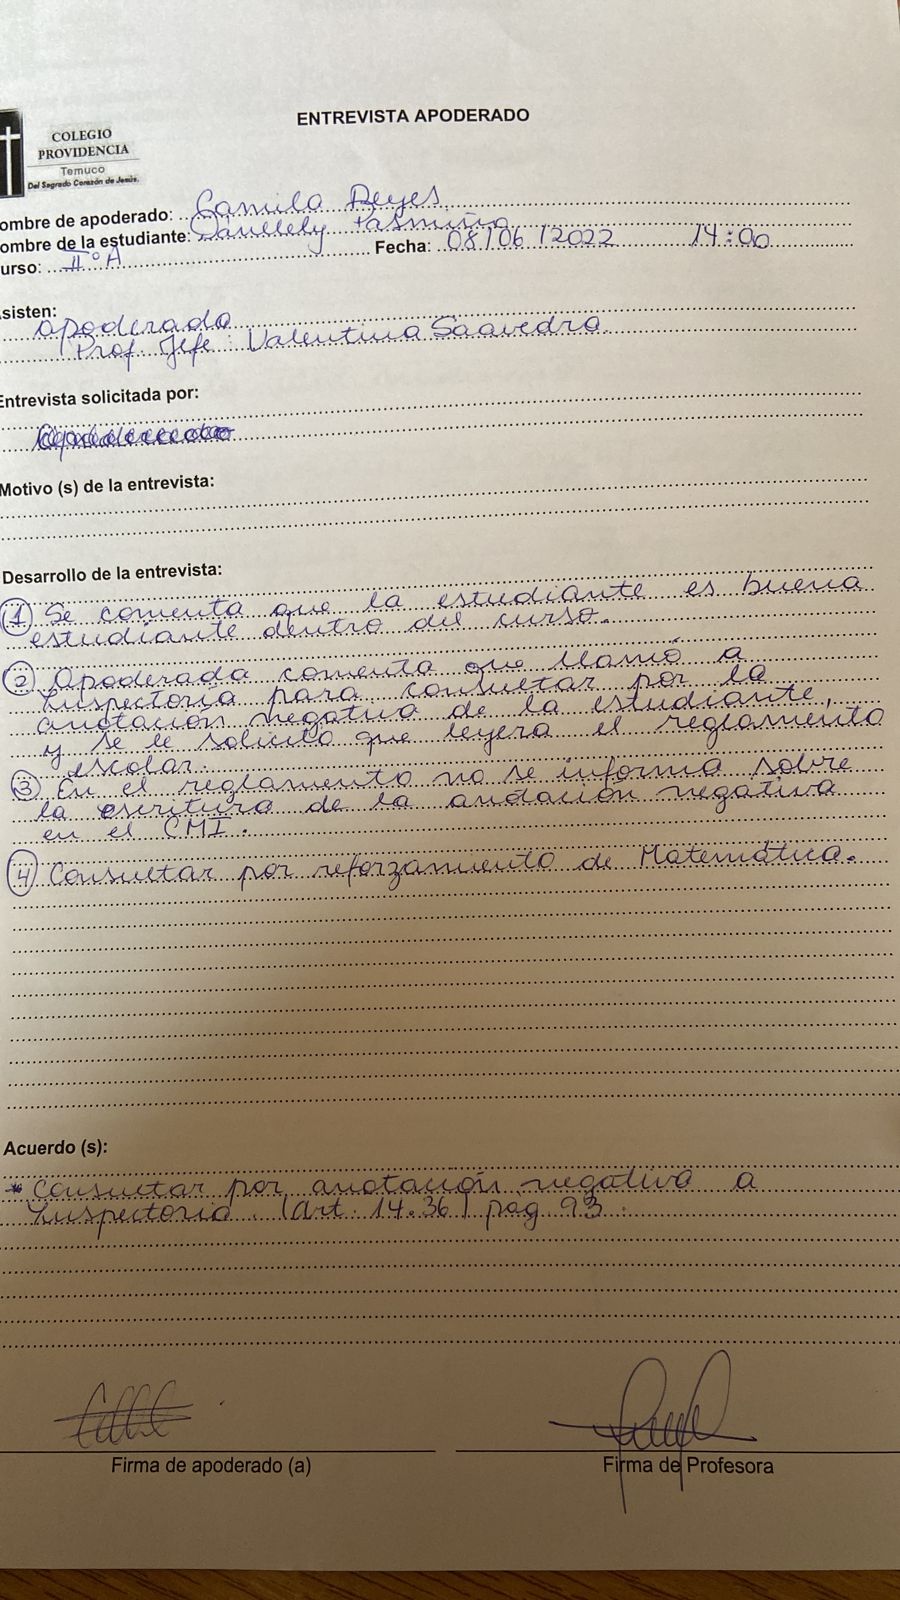 ENTREVISTA APODERADO
COLEGIO
PROVIDENCIA
Temuco
Del Sagrado Corazón de Jesús.
ombre de apoderado: Camila Reyes
ombre de la estudiante: Pasmiño
urso: II°A Fecha: 08/06/2022 14:00
sisten:
apoderada
Prof. Jefe: Valentina Saavedra
Entrevista solicitada por:
Motivo (s) de la entrevista:
Desarrollo de la entrevista:
① Se comenta que la estudiante es buena
estudiante dentro del curso.
② Apoderada comenta que llamó a
Inspectoría para consultar por la
anotación negativa de la estudiante,
y se le solicitó que leyera el reglamento
escolar.
③ En el reglamento no se informa sobre
la escritura de la anotación negativa
en el CMI.
④ Consultar por reforzamiento de Matemática.
Acuerdo (s):
* Consultar por anotación negativa a
Inspectoría. (Art. 14.36) pág 93.
Firma de apoderado (a)
Firma de Profesora